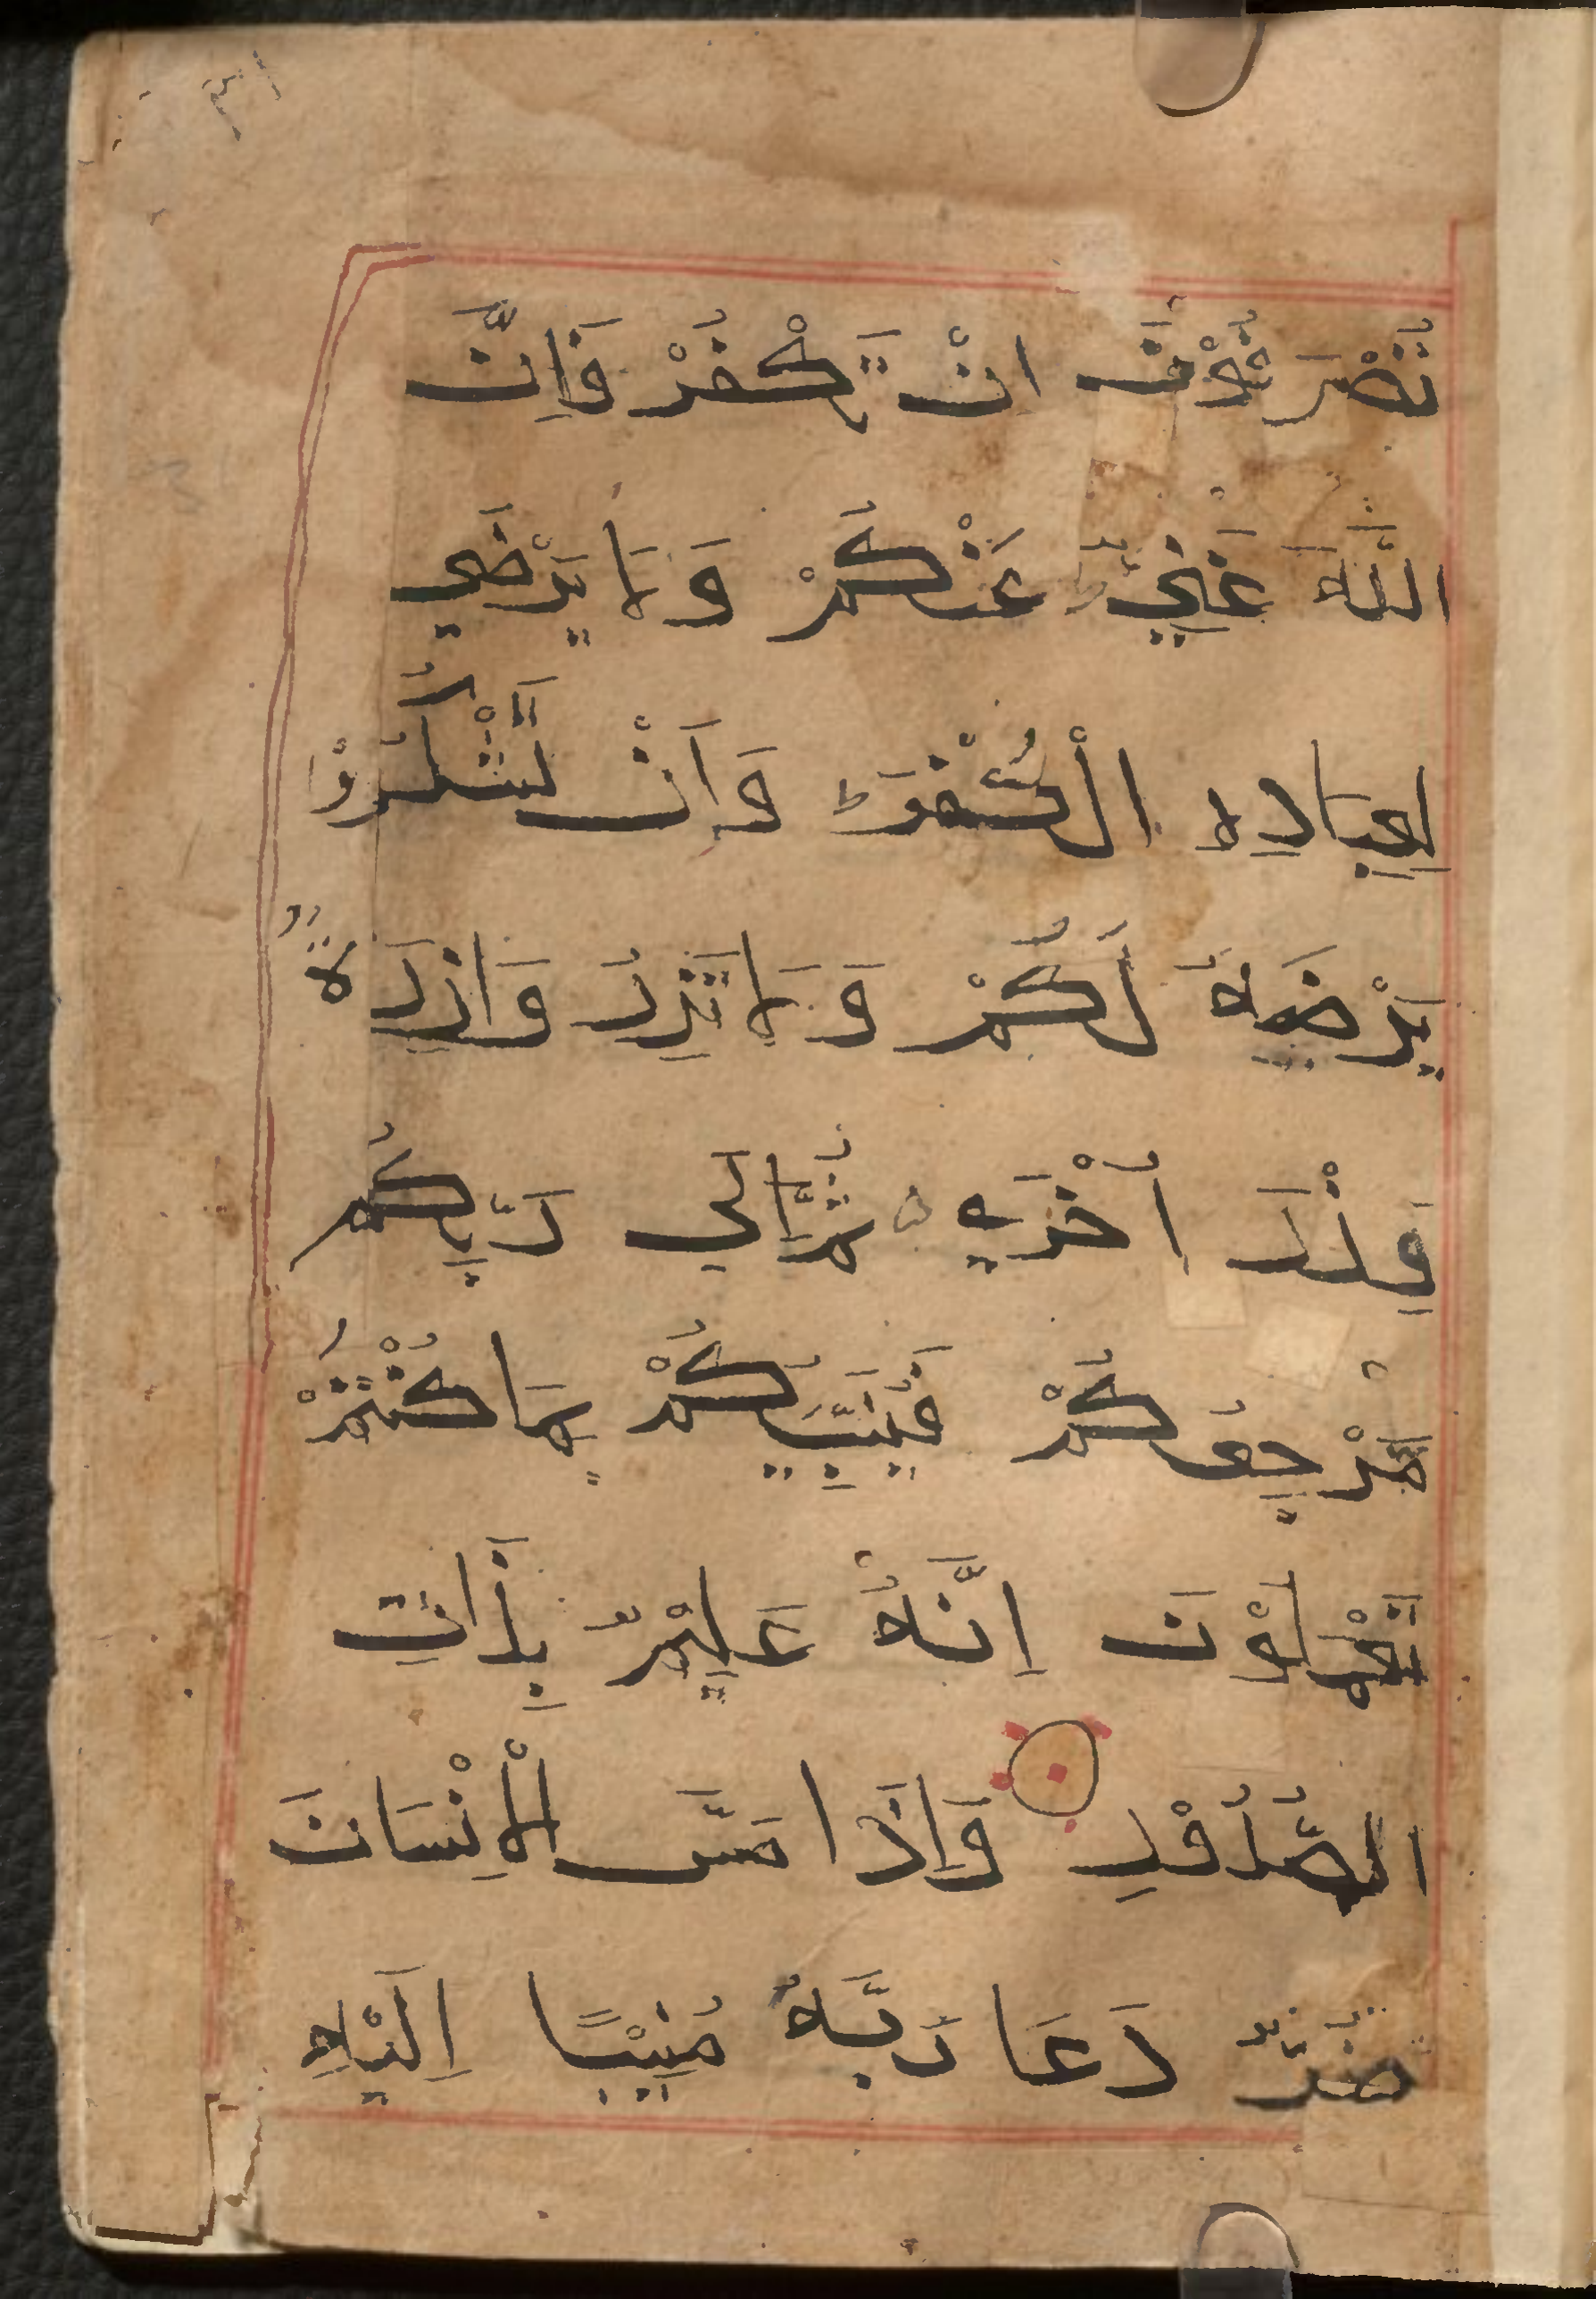 تُصْرَفُوْنَ اِنْ تَكْفُرْ فَاِنَّ
اللّٰهَ غَنِيٌّ عَنْكُمْ وَلَا يَرْضٰي
لِعِبَادِهِ الْكُفْرَ وَاَنْ تَشْكُرُوْا
يَرْضَيهُ لَكُمْ وَلَا تَزِرُ وَازِرَةٌ
وِزْرَ اُخْرٰي ثُمَّ اِلٰي رَبِّكُمْ
مَّرْجِعُكُمْ فَيُنَبِّيُكُمْ بِمَا كُنْتُمْ
تَعْمَلُوْنَ اِنَّهُ عَلِيْمٌ بِذَاتِ
الصُّدُوْرِ وَاِذَا مَسَّ الْاِنْسَانَ
ضُرٌّ دَعَا رَبَّهُ مُنِيْبًا اِلَيْهِ